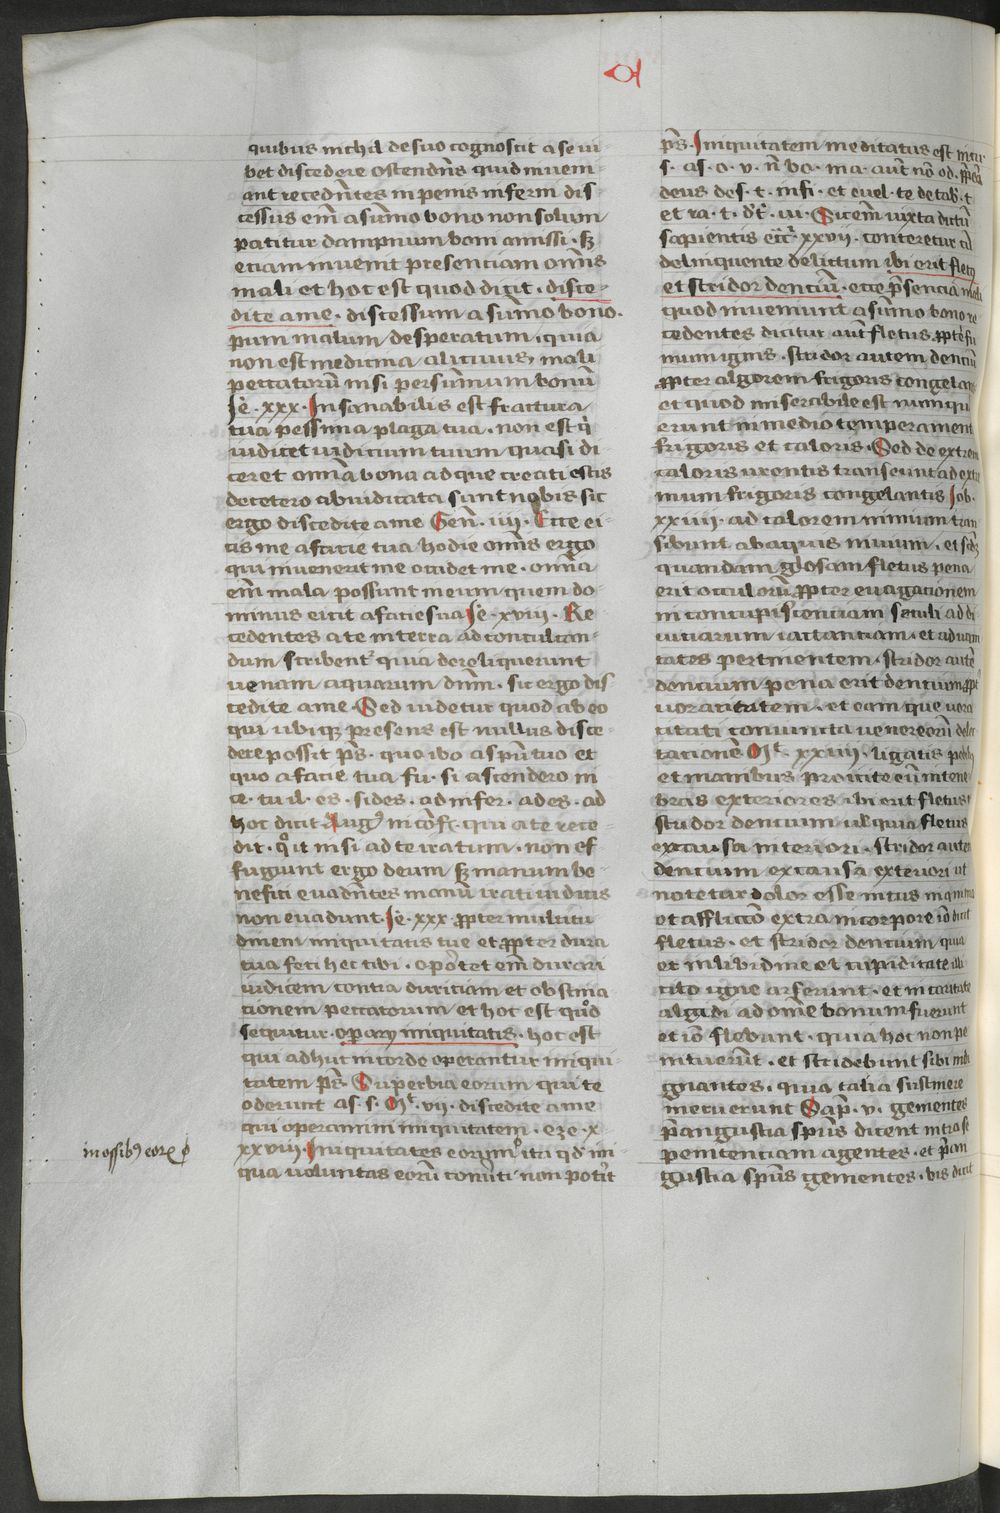 quibus nichil de suo cognoscit a se iu
bet discedere ostendn̄s quid inueni
ant recedn̄tes in penis inferni dis
cessus em̄ a sūmo bono non solum
patitur dampnum boni amissi · sꝫ
etiam inuenit presenciam om̄is
mali et hoc est quod dicit · disce
dite a me · discessum a sūmo bono ·
pum malum desperatum · quia
non est medicina alicuius mali
peccatorū nisi per sūmum bonū
Je · xxx · Insanabilis est fractura
tua pessima plaga tua · non est q̇
iudicet iudicium tuum quasi di
ceret om̄a bona ad que creati estis
de cetero abiudicata sunt nobis sic
ergo discedite a me Gen̄ · iiij · Ecce ei
cis me a facie tua hodie om̄s ergo
qui inuenerit me occidet me · om̄a
em̄ mala possunt in eum quem do
minus eicit a facie sua Je · xviij · Re
cedentes a te in terra ad conculcan
dum scribent᷑ quia dereliquerunt
uenam aquarum dn̄m · sic ergo dis
cedite a me · Sed uidetur quod ab eo
qui ubiqꝫ presens est nullus disce
dere possit p̄s · quo ibo a sp̄u tuo et
quo a facie tua fu · si ascendero in
ce · tu il · es · si des · ad infer · ades · ad
hoc dicit Augꝰ in cōf · qui a te rece
dit · qͦ it nisi ad te iratum · non ef
fugiunt ergo deum sꝫ manum be
nefici euadn̄tes manū irati iudicis
non euadunt · Je · xxx · ꝓpter multitu
dinem iniquitatis tue et ꝓpter dura
tua feci hec tibi · oportet em̄ durari
iudicem contra duriciam et obstina
cionem peccatorum et hoc est quod
sequitur · operarij iniquitatis · hoc est
qui adhuc in corde operantur iniqui
tatem p̄s · Superbia eorum qui te
oderunt as · s · Mt · vij · discedite a me
qui operamini iniquitatem · eze · x
xxviij · Iniquitates eorum itͦ qd̄ ini
qua uoluntas eorū conu̓ti non pot̓it
in ossibꝰ eorꝝ
p̄s · Iniquitatem meditatus est in cu
s · as · o · v · n̄ vo · ma · aut̄ nō od · ꝓp̄ea
deus des · t · in fi · et euel · te de tab · t
et ra · t · d't · vi · Sic em̄ iuxta dictū
sapientis ecc̄i · xxvij · conteretur cū
delinquente delictum ibi erit fletꝰ
et stridor denciū · ecce p̄sencia mali
quod inueniunt a sūmo bono re
cedentes dicitur aut̄ fletus ꝓpt̓ fu
mum ignis · stridor autem denciū
ꝓpter algorem frigoris congelan
et quod miserabile est nunqu
erunt in medio temperament
frigoris et caloris · Sed de extrem
caloris urentis transeunt ad extre
mum frigoris congelantis Job ·
xxiiij · ad calorem nimium tran
sibunt ab aquis niuium · et scd̄m
quandam glosam fletus pena
erit occulorū ꝓpter euagacionem
in concupiscenciam seculi ad di
uiciarum iactanciam · et ad uani
tates pertinentem · stridor aut̄
dencium pena erit dencium ꝓpt̓
uoracitatem · et eam que uora
citati coniuncta uenereorū delec
tacionē Mt · xxiiij · ligatis pedibꝰ
et manibus proicite eū in tene
bras exteriores ibi erit fletus
stridor dencium ul̓ quia fletus
ex causa interiori · stridor autem
dencium ex causa exteriori ut
notetur dolor esse intus in anima
et affliccō extra in corpore iō dicit
fletus · et stridor dencium quia
et in libidine et cupiditate illi
cito igne arserunt · et in caritate
algidi ad om̄e bonum fuerunt
et iō flebunt · quia hoc non pe
nituerūt · et stridebunt sibi indi
gnantes · quia talia sustinere
meruerunt Sap̄ · v · gementes
p̄ angustia sp̄us dicent intra se
penitenciam agentes · et p̄ an
gustia sp̄us gementes · bis dicit